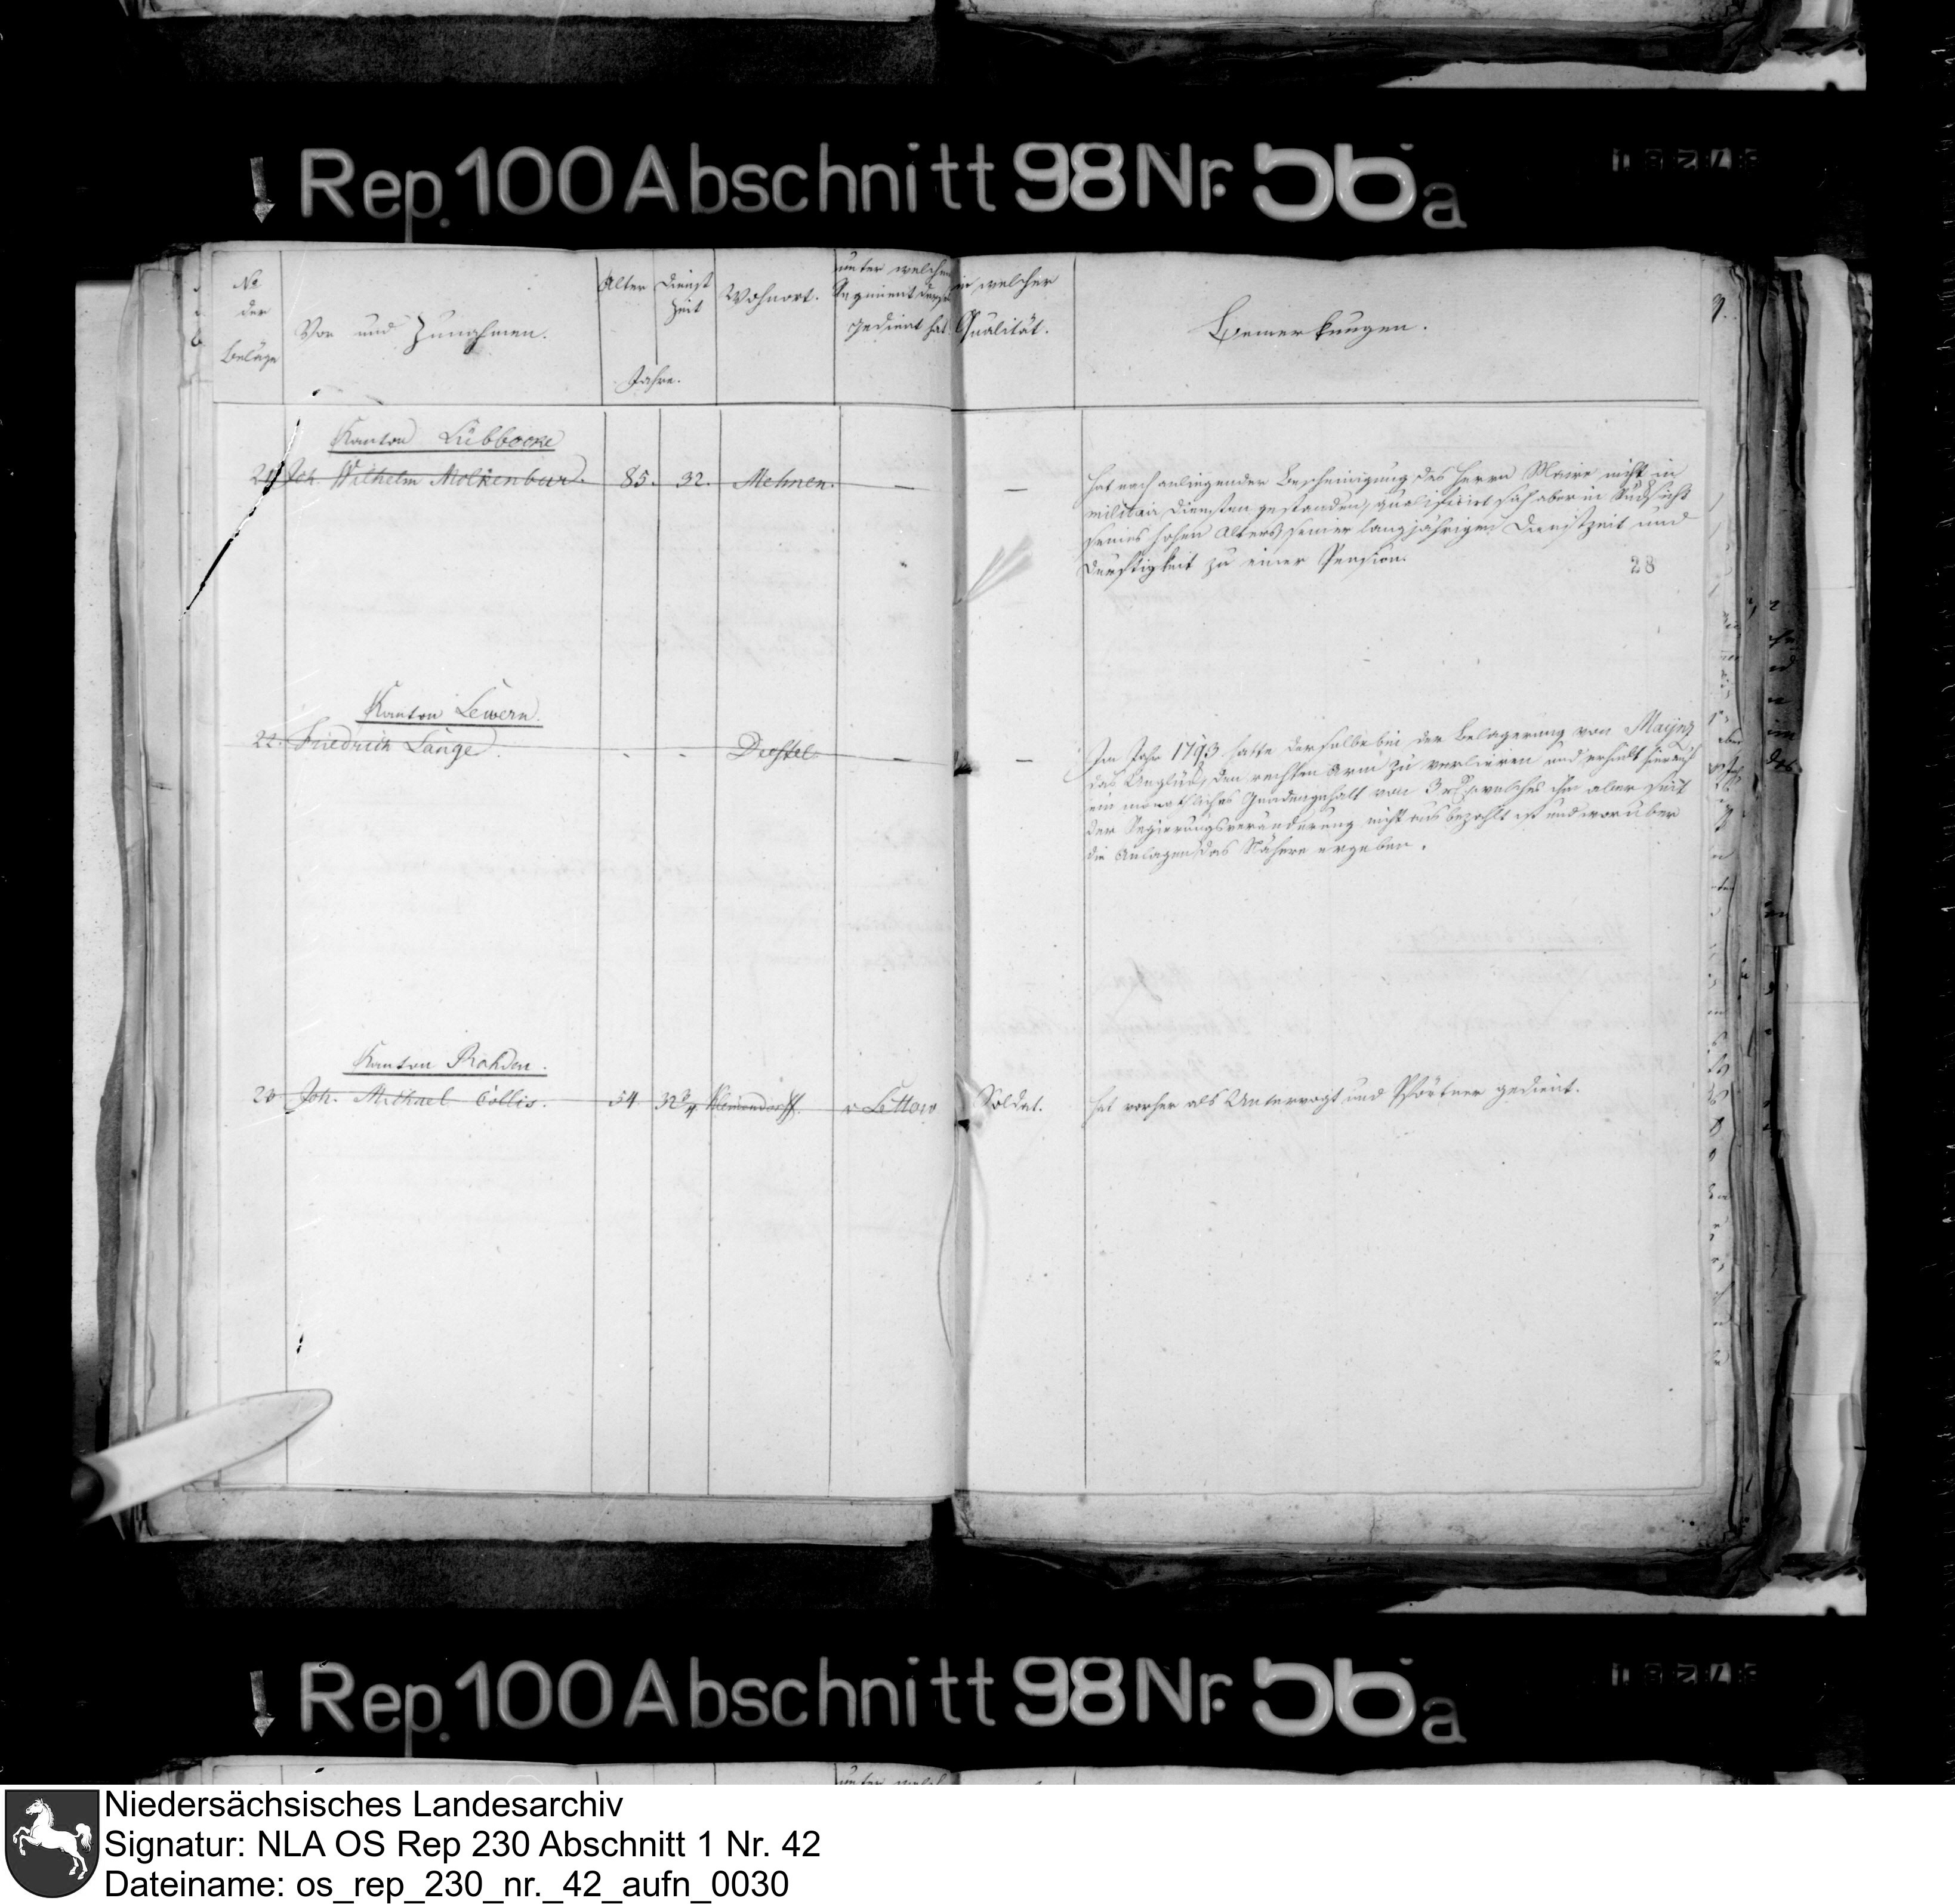 Rep. 100 Abschnitt 98 Nr. 56a
No der Beläge
Vor und Zunahmen.
Alter
Dienst zeit
Jahre.
Wohnort.
unter welchem Regiment derselbe gedient hat
in welcher Qualität.
Bemerkungen.
Kanton Lübbecke
21 Joh. Wilhelm Molkenbur. 85. 32. Mehnen. — —
hat nach anliegender Bescheinigung des Herrn Maire nicht in
militair Diensten gestanden, qualificirt sich aber in Rücksicht
seines hohen Alters, seiner langjährigen Dienstzeit und
Dürftigkeit zu einer Pension.
28
Kanton Lewern.
22. Friedrich Lange. - - Destel. — —
Im Jahr 1793 hatte derselbe bei der Belagerung von Maynz
das Unglück, den rechten Arm zu verlieren und erhielt hierauf
ein monathliches Gnadengehalt von 3 welches ihm aber seit
der Regierungsveränderung nicht ausbezahlt ist und worüber
die Anlagen das Nähere ergeben.
Kanton Rahden.
23 Joh. Michael Collis. 54 32 3/4 v. Lettow Soldat.
hat vorher als Untervogt und Pförtner gedient.
Rep. 100 Abschnitt 98 Nr. 56a
Niedersächsisches Landesarchiv
Signatur: NLA OS Rep 230 Abschnitt 1 Nr. 42
Dateiname: os_rep_230_nr._42_aufn_0030